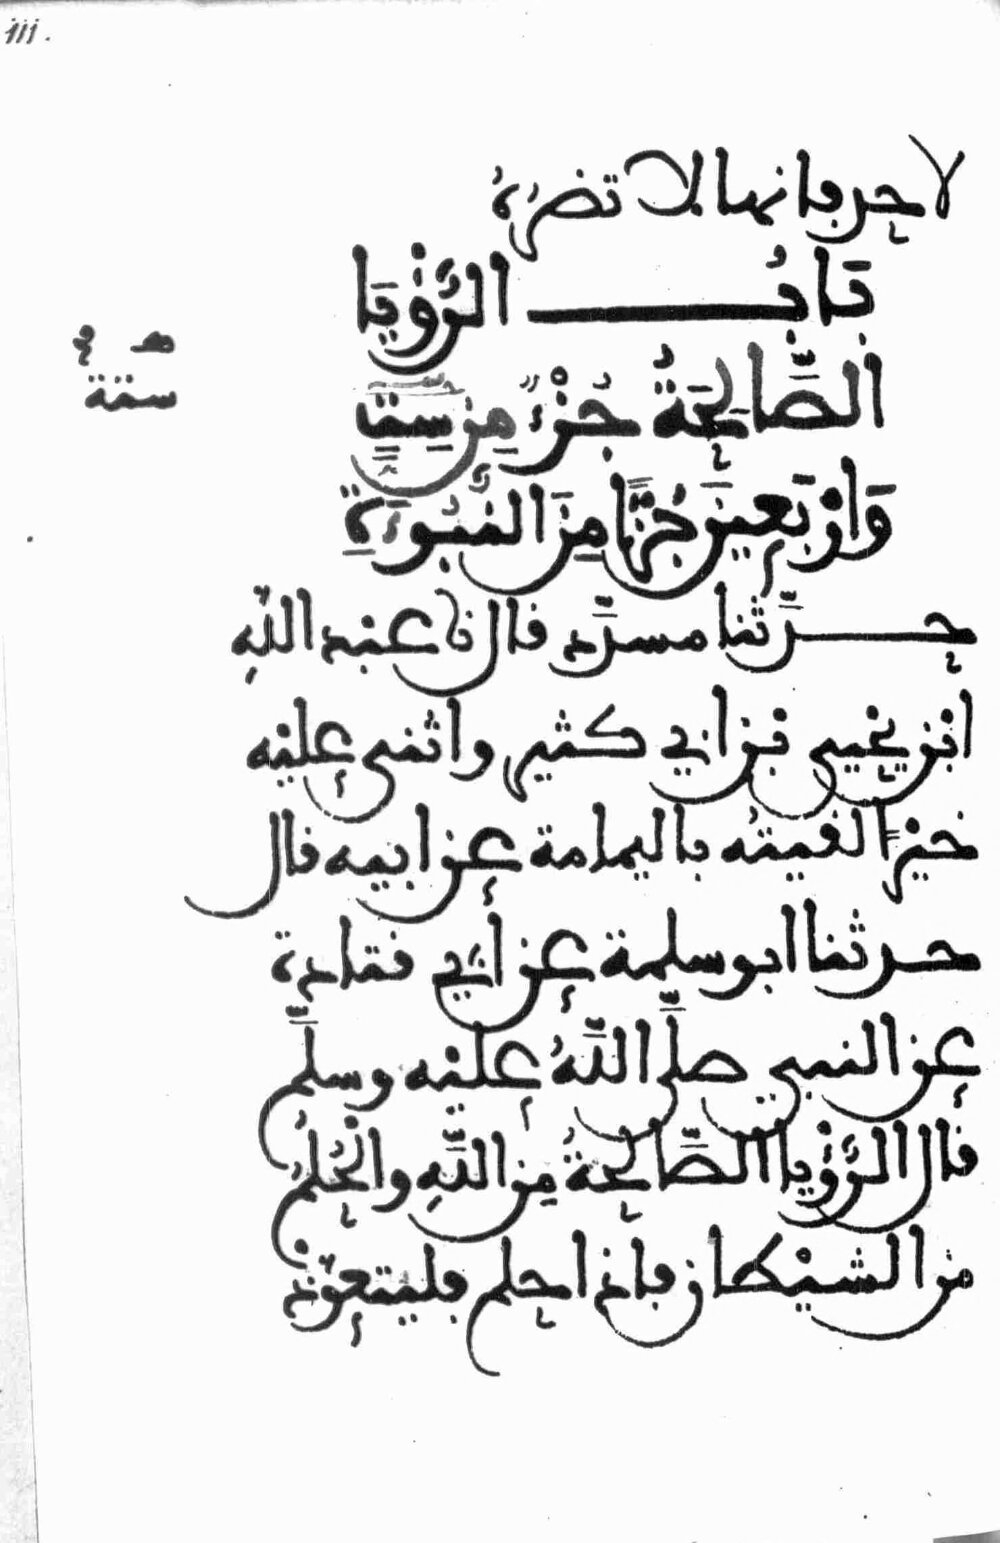 iii.
لاحد فانها لا تضره
بَابُ الرُّؤْيَا
الصَّالِحَةُ جُزْءٌ مِن سِتَّةٍ
وَارْبَعِينَ جُزْءًا مِنَ النُّبُوءَةِ
ستة
حدّثنا مسدّد قال نا عبْد اللّهِ
ابْن يحْيى بْن ابي كثير واثنى عليْه
خيْرًا لقيتُه باليمامة عن ابيه قال
حدثنا ابو سلمة عن أبي قتادة
عن النبي صلّى اللّهُ عليْه وسلّم
قال الرُّؤْيا الصَّالحةُ مِن اللّهِ والحُلمُ
من الشيْطان فاذا حلم فليتعوّذ